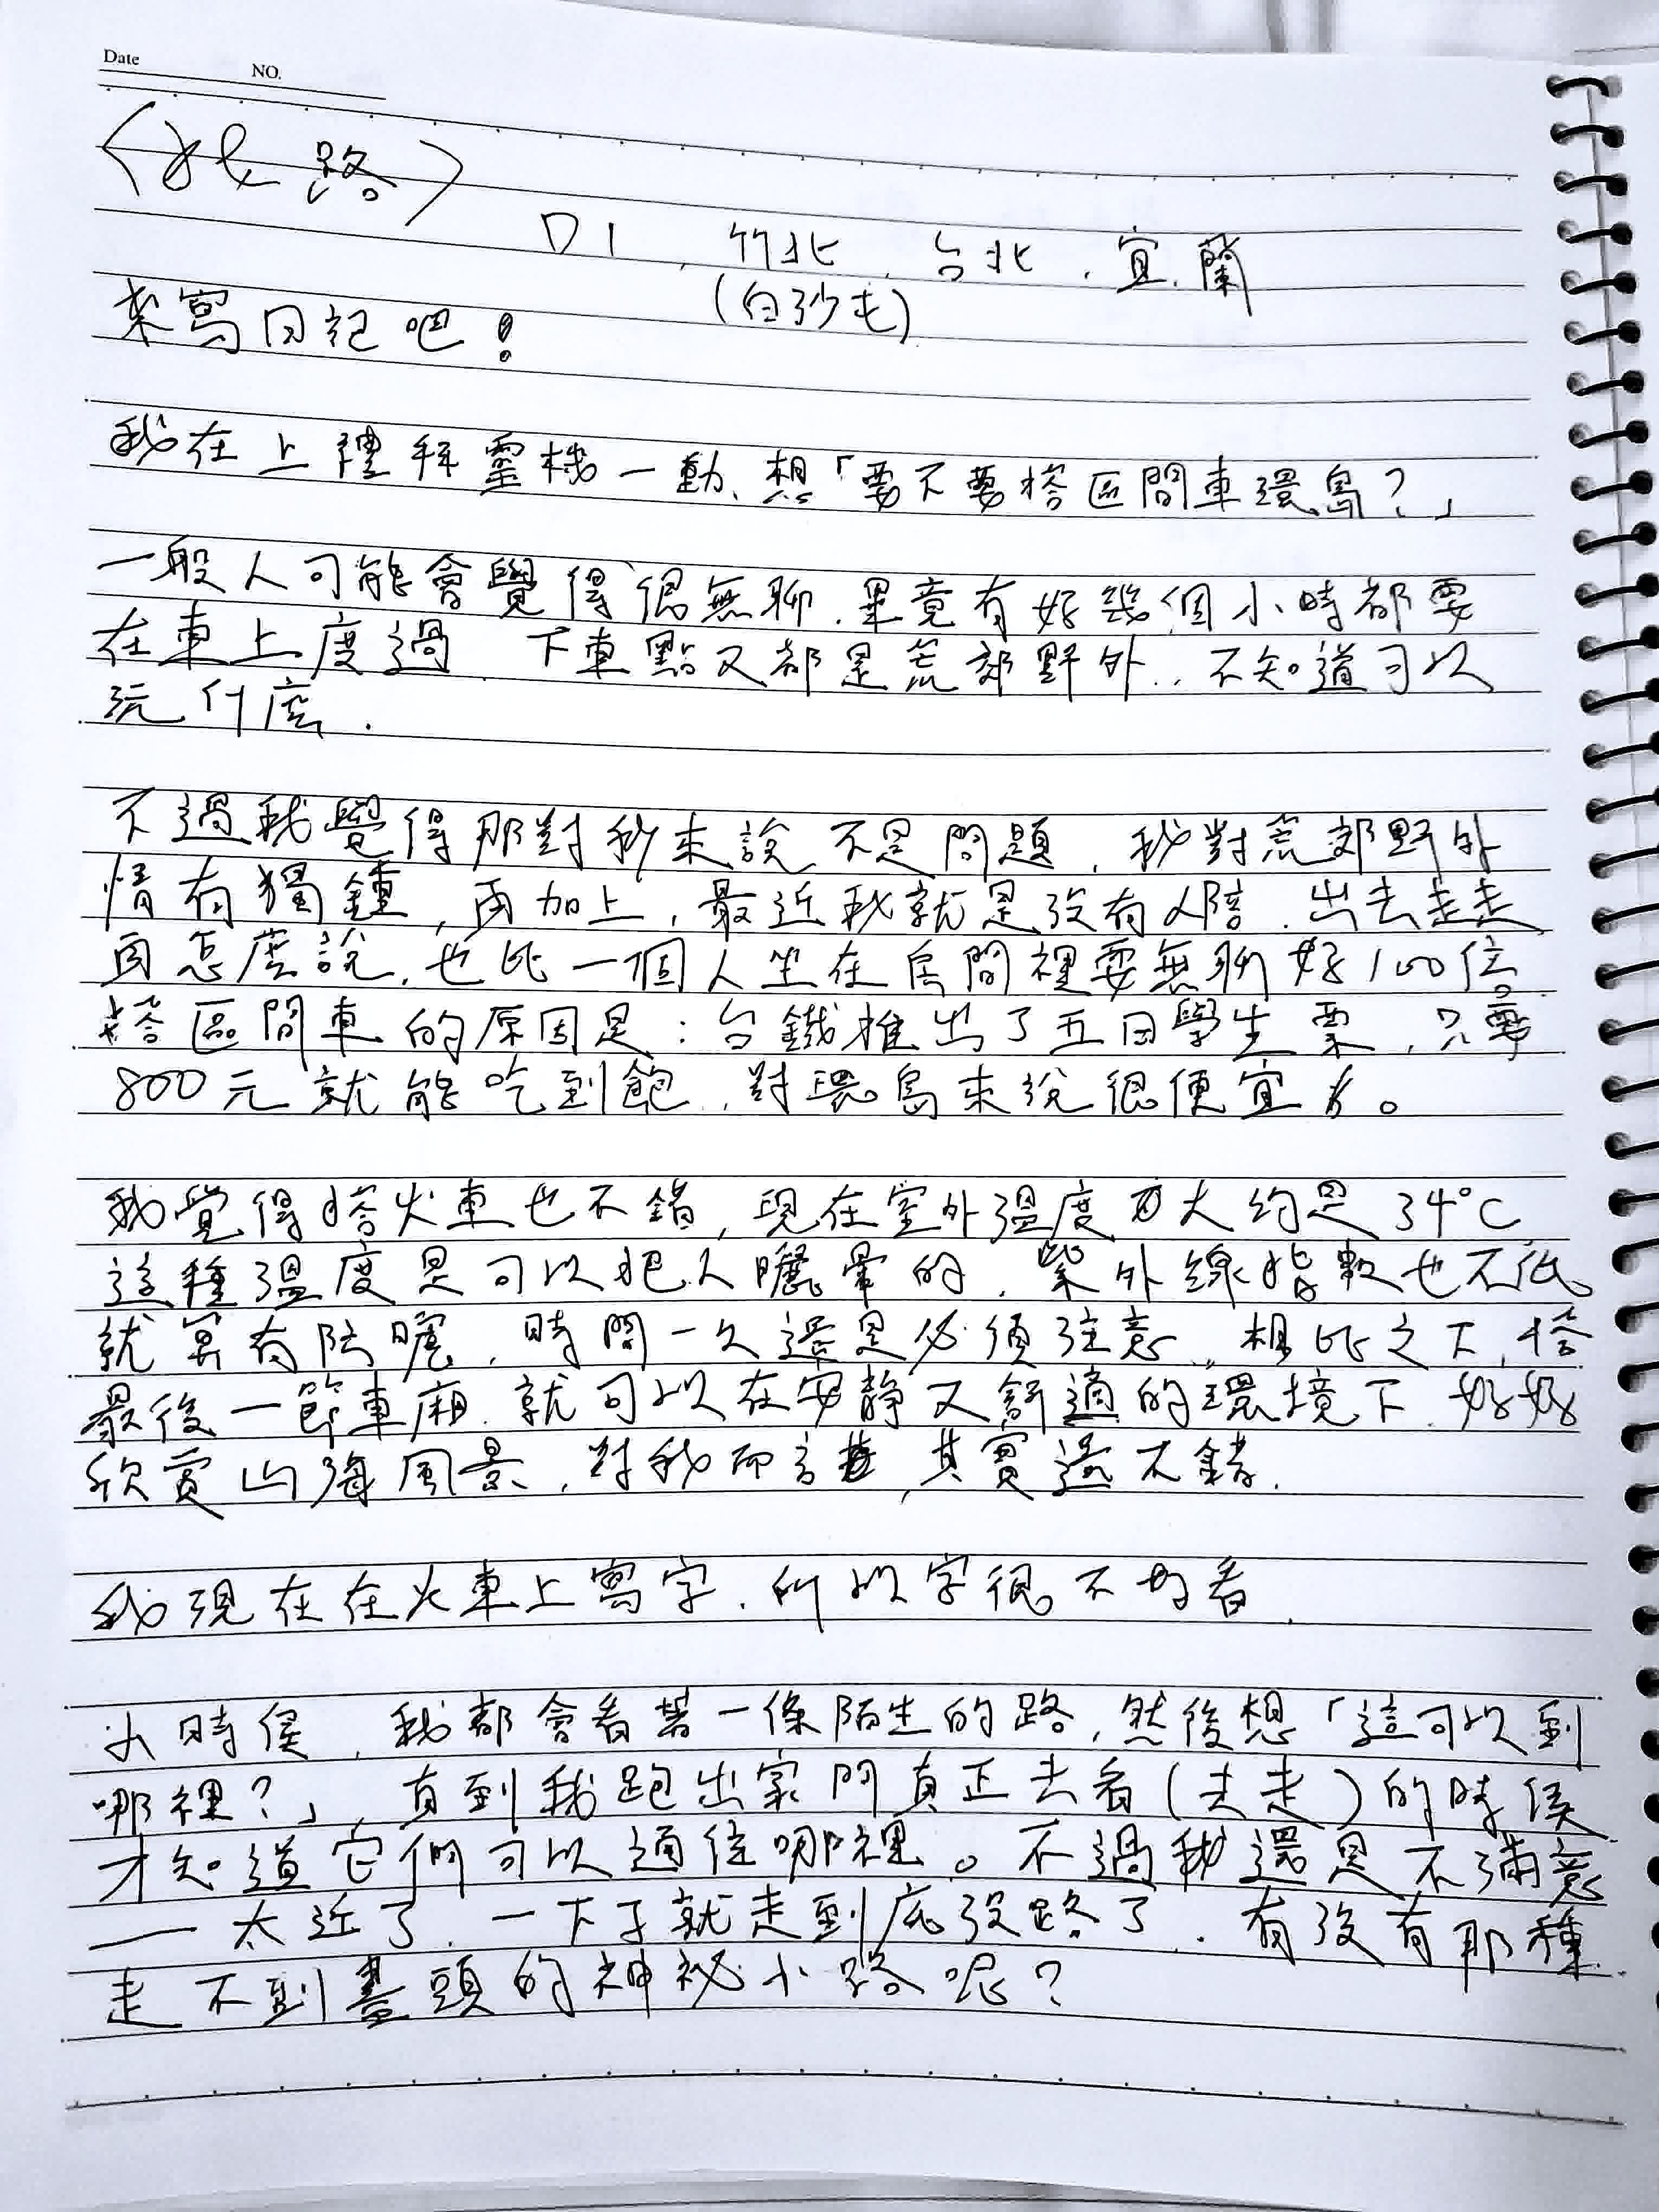 Date
NO.
路
D1, 竹北, 台北, 宜蘭
(白沙屯)
來寫日記吧!
我在上禮拜靈機一動、想「要不要搭區間車環島?」
一般人可能會覺得很無聊,畢竟有好幾個小時都要
在車上度過,下車點又都是荒郊野外,不知道可以
玩什麼.
不過我覺得那對我來說不是問題,我對荒郊野外
情有獨鍾,再加上,最近我就是沒有人陪.出去走走
再怎麼說,也比一個人坐在房間裡要無聊好100倍。
搭區間車的原因是:台鐵推出了五日學生票,只要
800元就能吃到飽,對環島來說很便宜。
我覺得搭火車也不錯,現在室外溫度大約是34°C
這種溫度是可以把人曬暈的,紫外線指數也不低
就算有防曬,時間一久還是必須注意,相比之下,搭
最後一節車廂,就可以在安靜又舒適的環境下,好好
欣賞山海風景,對我而言,其實還不錯.
我現在在火車上寫字,所以字很不好看.
小時侯,我都會看著一條陌生的路,然後想「這可以到
哪裡?」,直到我跑出家門真正去看(去走)的時侯
才知道它們可以通往哪裡。不過我還是不滿意
——太近了,一下子就走到底沒路了,有沒有那種
走不到盡頭的神祕小路呢?